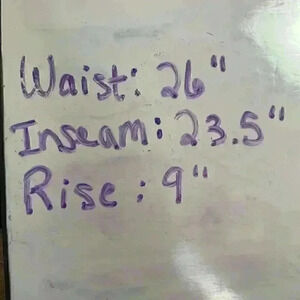 Waist: 26"
Inseam: 23.5"
Rise: 9"